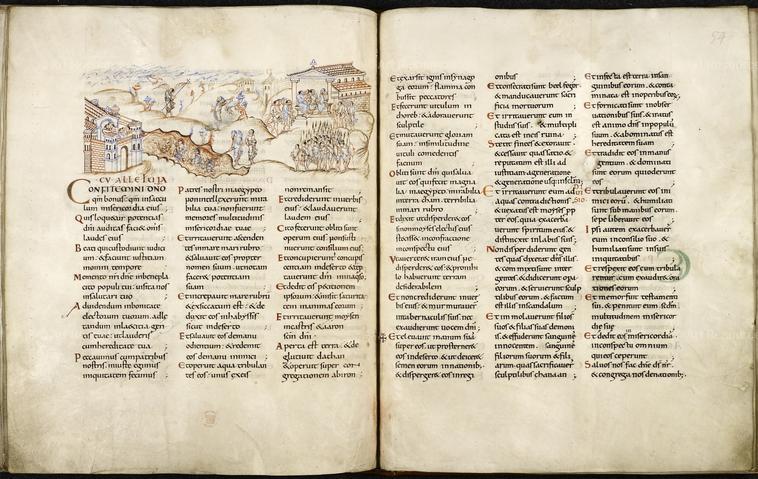 CV ALLELUIA
CONFITEMINI DNO
qm bonus qm insaecu
lum misericordia eius
Quis loquetur potentias
dni auditas faci& omnes
laudes eius
Beati qui custodiunt iudici
um & faciunt iustitiam
inomni tempore
Memento nri dne inbenepla
cito populi tui uisita nos
insalutari tuo
Aduidendum inbonitate
electorum tuorum adl&e
tandum inlaetitia gen
tis tuae ut lauderis
cumhereditate tua
Peccauimus cumpatribus
nostris iniuste egimus
iniquitatem fecimus
Patres nostri inaegypto
non intellexerunt mira
bilia tua non fuerunt
memores multitudinis
misericordiae tuae
Et irritauerunt ascenden
tes inmare mare rubrum
& saluauit eos propter
nomen suum ut notam
facer& potentiam
suam
Et increpauit mare rubru
& exsiccatum est & de
duxit eos inabyssis
sicut indeserto
Et saluauit eos demanu
odientium & redemit
eos demanu inimici
Et operuit aqua tribulan
tes eos unus exeis
nonremansit
Et crediderunt inuerbis
eius & laudauerunt
laudem eius
Cito fecerunt obliti sunt
operum eius non susti
nuerunt consilium eius
Et concupierunt concupis
centiam indeserto & tep
tauerunt dm inaquoso
Et dedit eis p&itionem
ipsorum & misit saturita
tem inanimas eorum
Et irritauerunt moysen
incastris & aaron
scm dni
Aperta est terra & de
glutiuit dathan
& operuit super con
gregationem abiron
Et exarsit ignis insynagog
ga eorum flamma con
bussit peccatores
Et fecerunt uitulum in
choreb & adorauerunt
sculptile
Et mutauerunt gloriam
suam insimilitudine
uituli comedentis
faenum
Obliti sunt dm qui salua
uit eos qui fecit magna
lia inaegypto mirabilia
interra cham terribilia
inmari rubro
Et dixit ut disperder& eos
sinon moyses electus eius
st&iss& inconfractione
inconspectu eius
Ut auerter& iram eius ne
disperder& eos & pronihi
lo habuerunt terram
desiderabilem
Et noncrediderunt inuer
bis eius & murmurauer
intabernaculis suis nec
exaudierunt uocem dni
Et eleuauit manum sua
super eos ut prosterner&
eos indeserto & ut deicer&
semen eorum innationib
& disperger& eos inregi
onibus
Et consecrati sunt beel fegor
& manducauerunt sacri
ficia mortuorum
Et irritauerunt eum in
studiis suis & multipli
cata est ineis ruina
St&it finees & exorauit
& cessauit quassatio &
reputatum est illi ad
iustitiam ageneratione
& generationem usq insempitnu
Et irritauerunt eum ad
aquas contradictionis
& uexatus est moyses pp
ter eos quia exacerba
uerunt spiritum eius &
distinxit inlabiis suis
Non disperdiderunt gen
tes quas dixerat dns illis
& commixti sunt inter
gentes & didicerunt opa
eorum & seruierunt scul
ptilibus eorum & factum
est illis inscandalum
Et immolauerunt filios
suos & filias suas demoni
is & effuderunt sanguine
innocentem sanguine
filiorum suorum & filia
rum quas sacrificauer
sculptilibus chanaan
Et infecta est terra insan
guinibus eorum & conta
minata est inoperibus eoru
Et fornicati sunt inobser
uationibus suis & iratus
est animo dns inpopulu
suum & abominatus est
hereditatem suam
Et tradidit eos inmanus
gentium & dominati
sunt eorum qui oderunt
eos
Et tribulauerunt eos ini
mici eoru & humiliati
sunt sub manibus eorum
sepe liberauit eos
Ipsi autem exacerbauer
eum inconsilio suo &
humiliati sunt insuis
iniquitatibus
Et respexit eos cum tribula
rentur cum exaudir& ora
tiones eorum
Et memor fuit testamenti
sui & penituit eum scdm
multitudinem misericor
diae suae
Et dedit eos inmisericordia
inconspectu omnium
qui eos ceperunt
Saluos nos fac dne ds nr
& congrega nos denationib